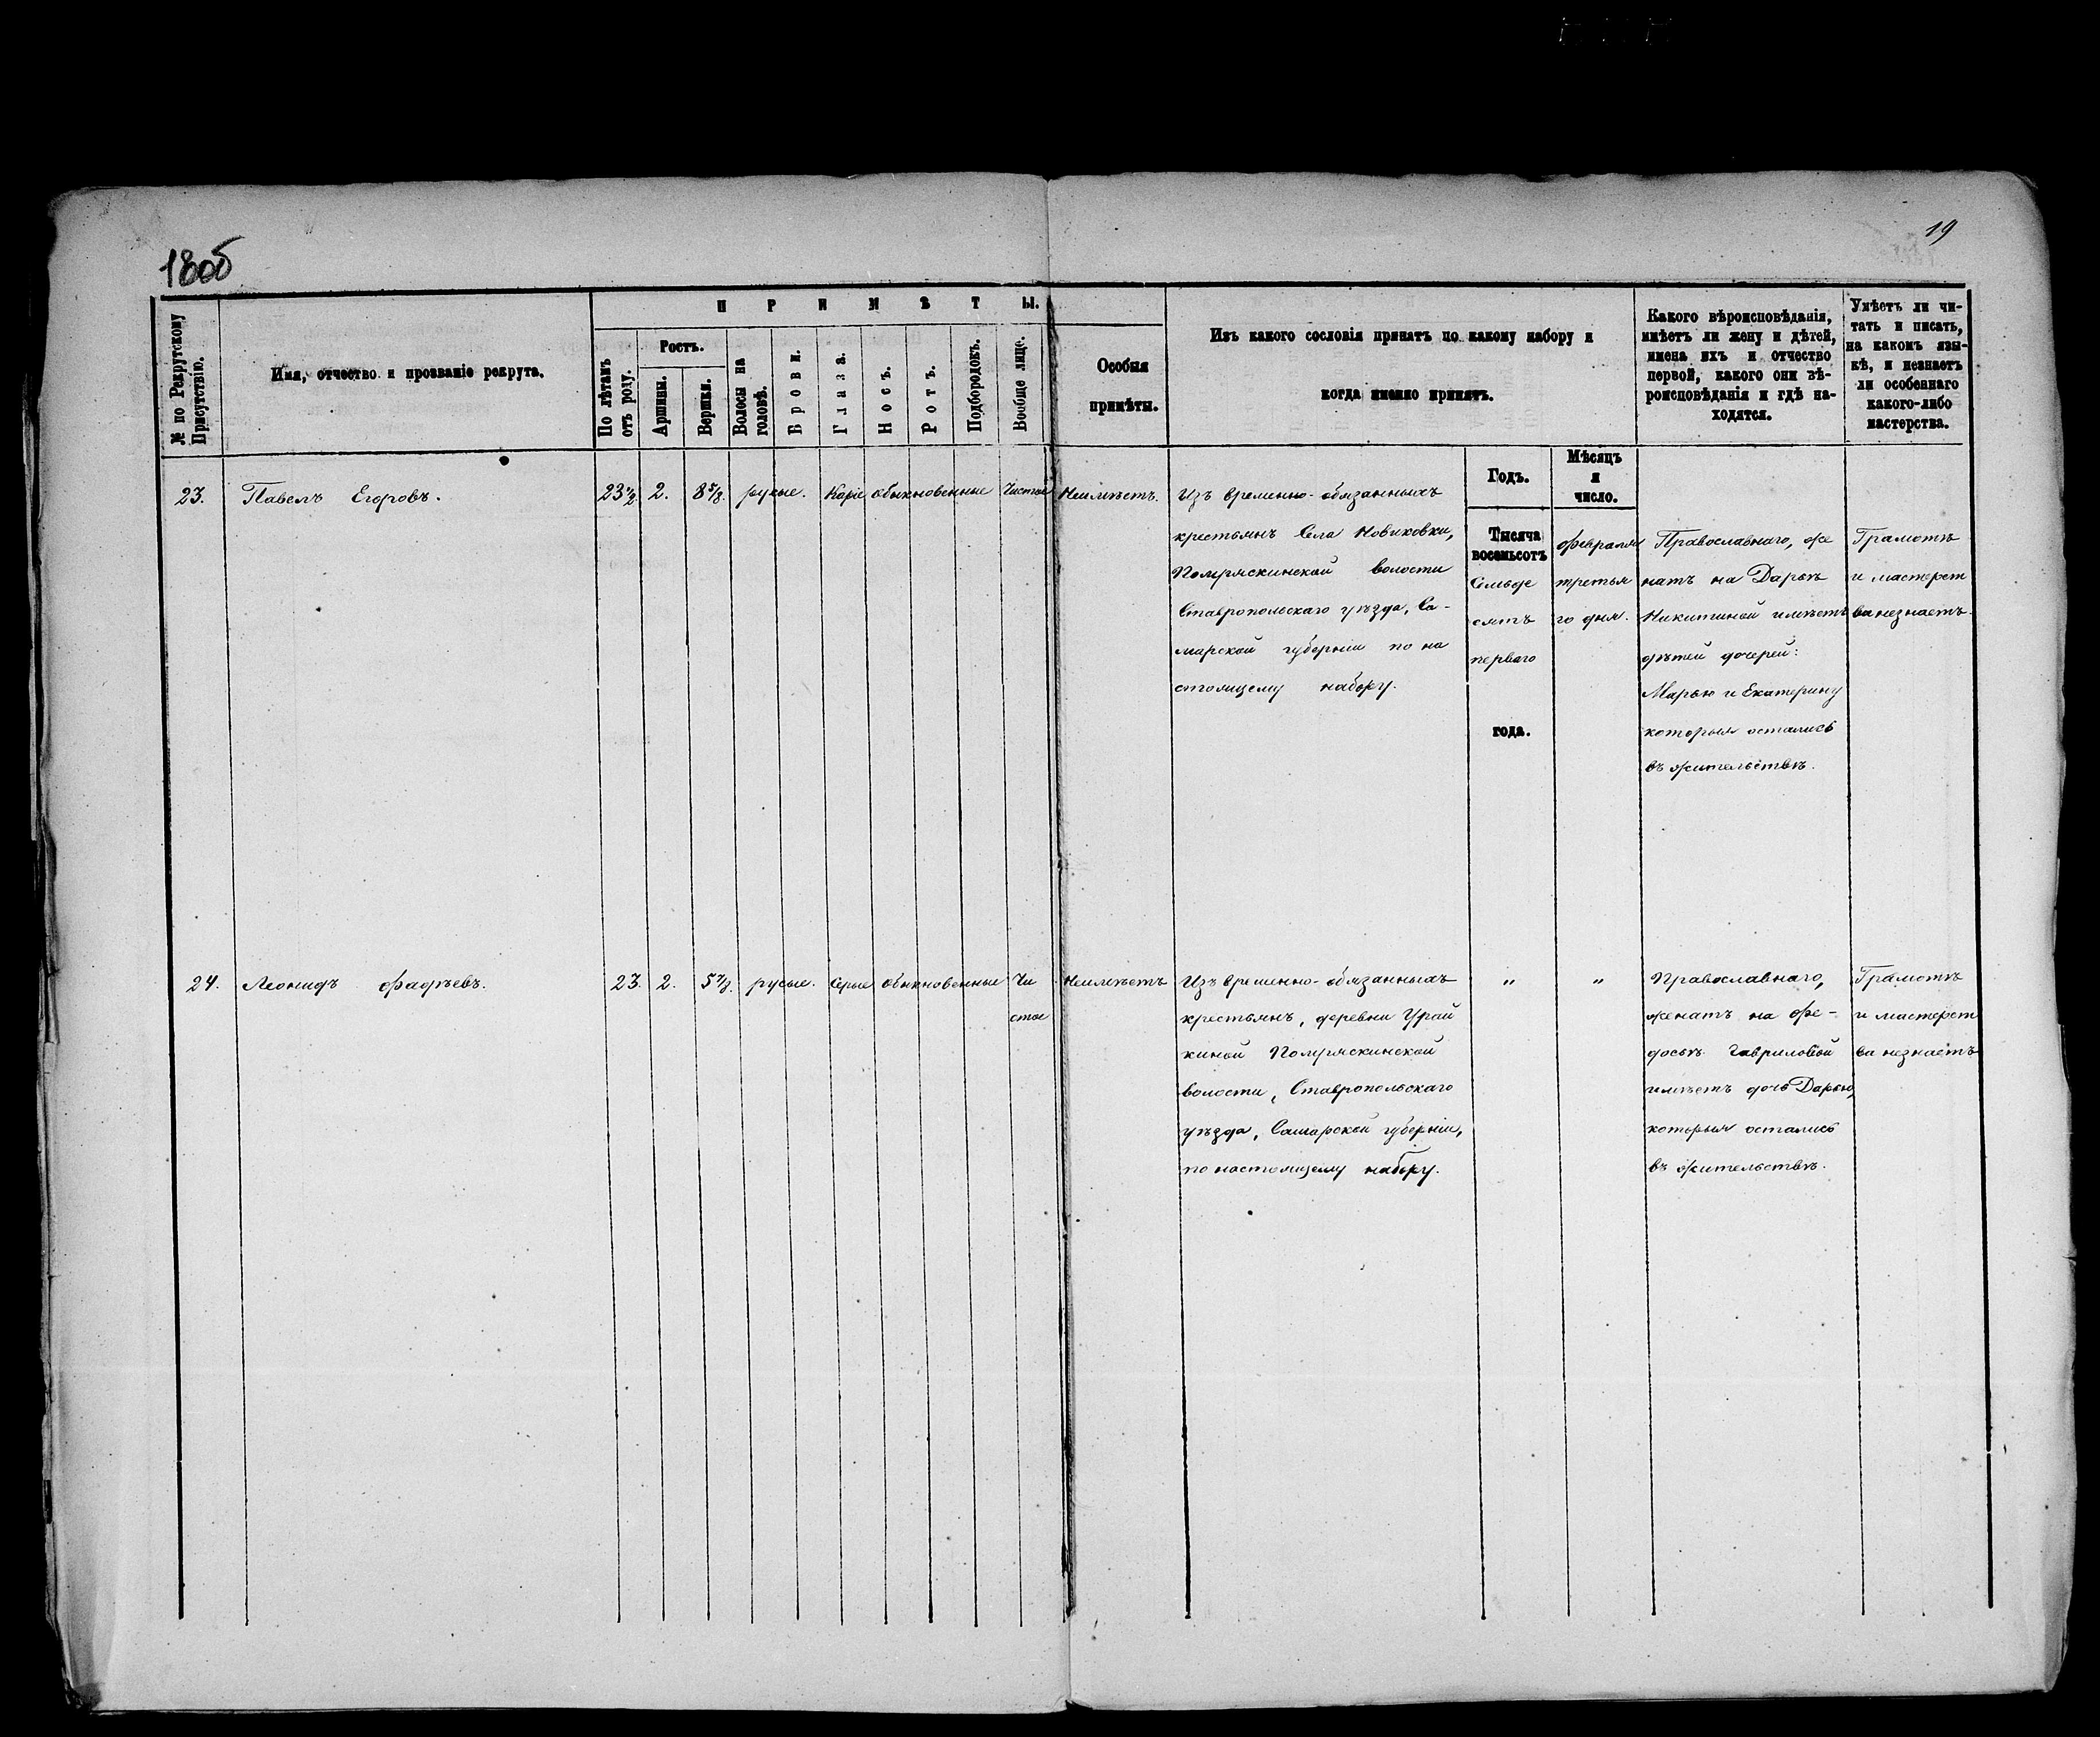 18об
19
№ по Рекрутскому Присутствію.
Имя, отчество и прозваніе рекрута.
ПРИМѢТЫ.
По лѣтамъ отъ роду.
Ростъ.
Аршины.
Вершки.
Волосы на головѣ.
Брови.
Глаза.
Носъ.
Ротъ.
Подбородокъ.
Вообще лице.
Особыя
примѣты.
Изъ какого сословія принятъ по какому набору и
когда именно принятъ.
Какого вѣроисповѣданія,
имѣетъ ли жену и дѣтей,
имена ихъ и отчество
первой, какого они вѣ-
роисповѣданія и гдѣ на-
ходятся.
Умѣетъ ли чи-
тать и писать,
на какомъ язы-
кѣ, и незнаетъ
ли особеннаго
какого-либо
мастерства.
Годъ.
Мѣсяцъ
и
число.
23. Павелъ Егоровъ. 23 1/2 2. 8 5/8. русые. Каріе обыкновенные Чистое Неимѣетъ.
Изъ временно-обязанныхъ
крестьянъ Села Новиковки,
Помряскинской волости
Ставропольскаго уѣзда, Са-
марской губерніи по на
стоящему набору.
Тысяча
восемьсотъ
Семьде
сятъ
перваго
года.
Февраля
третья
го дня.
Православнаго, же
натъ на Дарьѣ
Никитиной имѣетъ
дѣтей дочерей:
Марью и Екатерину
которыя остались
въ жительствѣ.
Грамотѣ
и мастерст
ва незнаетъ.
24. Леонидъ Фадѣевъ. 23. 2. 5 7/8. русые. Серые обыкновенные Чи
стое
Неимѣетъ
Изъ временно-обязанныхъ
крестьянъ, деревни Урай
киной Помряскинской
волости, Ставропольскаго
уѣзда, Самарской губерніи,
по настоящему набору.
"
"
Православнаго,
женатъ на Фе-
досьѣ Гавриловой
имѣетъ дочь Дарью,
которыя остались
въ жительствѣ.
Грамотѣ
и мастерст
ва незнаетъ